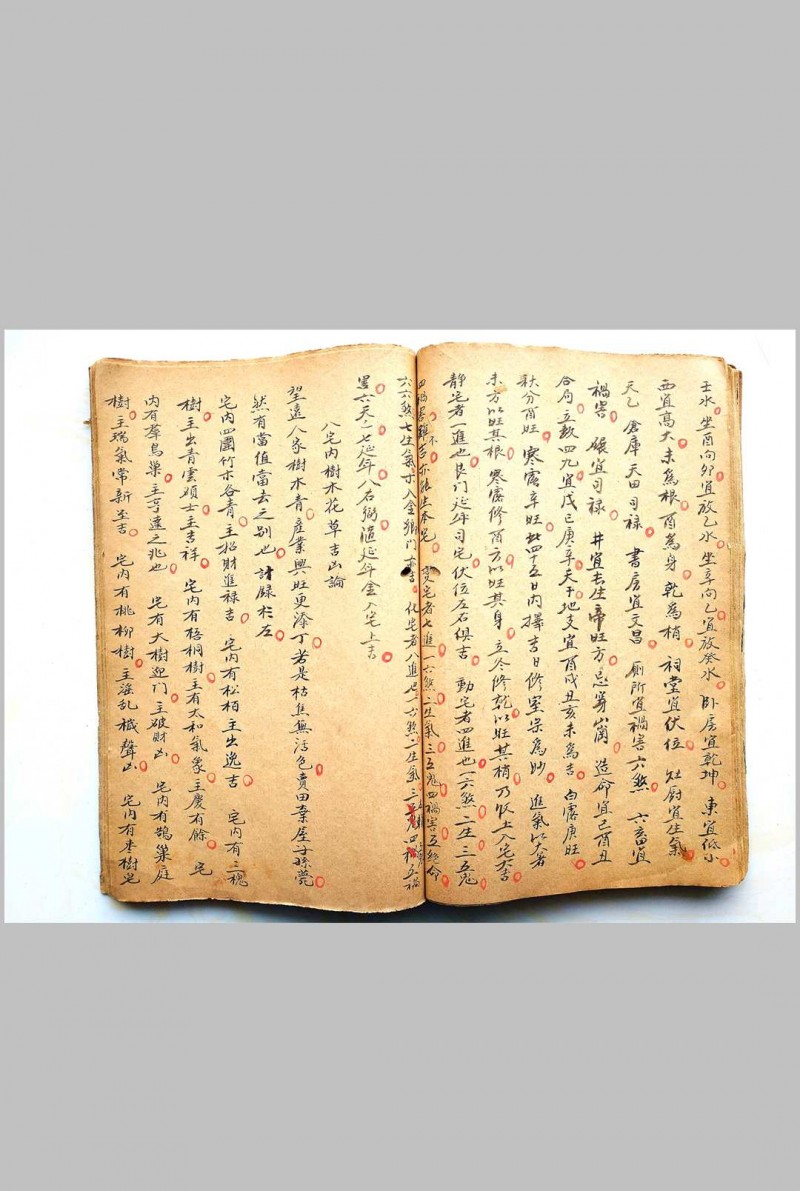 壬水 坐酉向卯宜放乙水 坐辛向乙宜放癸水 卧房宜乾坤 東宜低小
西宜高大 未為根 酉為身 乾為梢 祠堂宜伏位 灶厨宜生氣
天乙 倉庫天田司禄 書房宜文昌 厠所宜禍害六煞 六畜宜
禍害 碾宜司禄 井宜去生帝旺方 忌 造命宜己酉丑
合局 立數四九宜戊己庚辛天干地支宜酉戌丑亥未為吉 白露庚旺
秋分酉旺 寒露辛旺 此四十五日内擇吉日修室宗為妙 進氣以大暑
未方以旺其根 寒露修酉方以旺其身 立冬修乾以旺其梢乃収土入宅大吉
靜宅者一進也艮门延年司宅伏位左右俱吉 動宅者四進也一六煞二生三五鬼
四禍害 不 亦能生本兄 変宅者七進一六煞二生氣三五鬼四禍害五絶命
六六煞七生氣 入金 門 吉 化宅者八進也一六煞二生氣三 鬼四 五禍
害六天乙七延年八右弼隨延年金入宅上吉
八宅内樹木花草吉凶論
望遠人家樹木青 産業興旺更添丁 若是枯焦無活色 賣田棄屋子孫
然有當值當去之别也 詳録於左
宅内四圍竹木谷青 主招財進禄吉 宅内有松柏主出逸吉 宅内有三槐
樹主出青雲碩士主吉祥 宅内有梧桐樹主有太和氣象主慶有餘 宅
内有羣鳥巢主亨達之兆也 宅有大樹迎门主破財凶 宅内有鵲巢庭
樹主瑞氣常新至吉 宅内有桃柳樹主滛乱 聲凶 宅内有枣樹